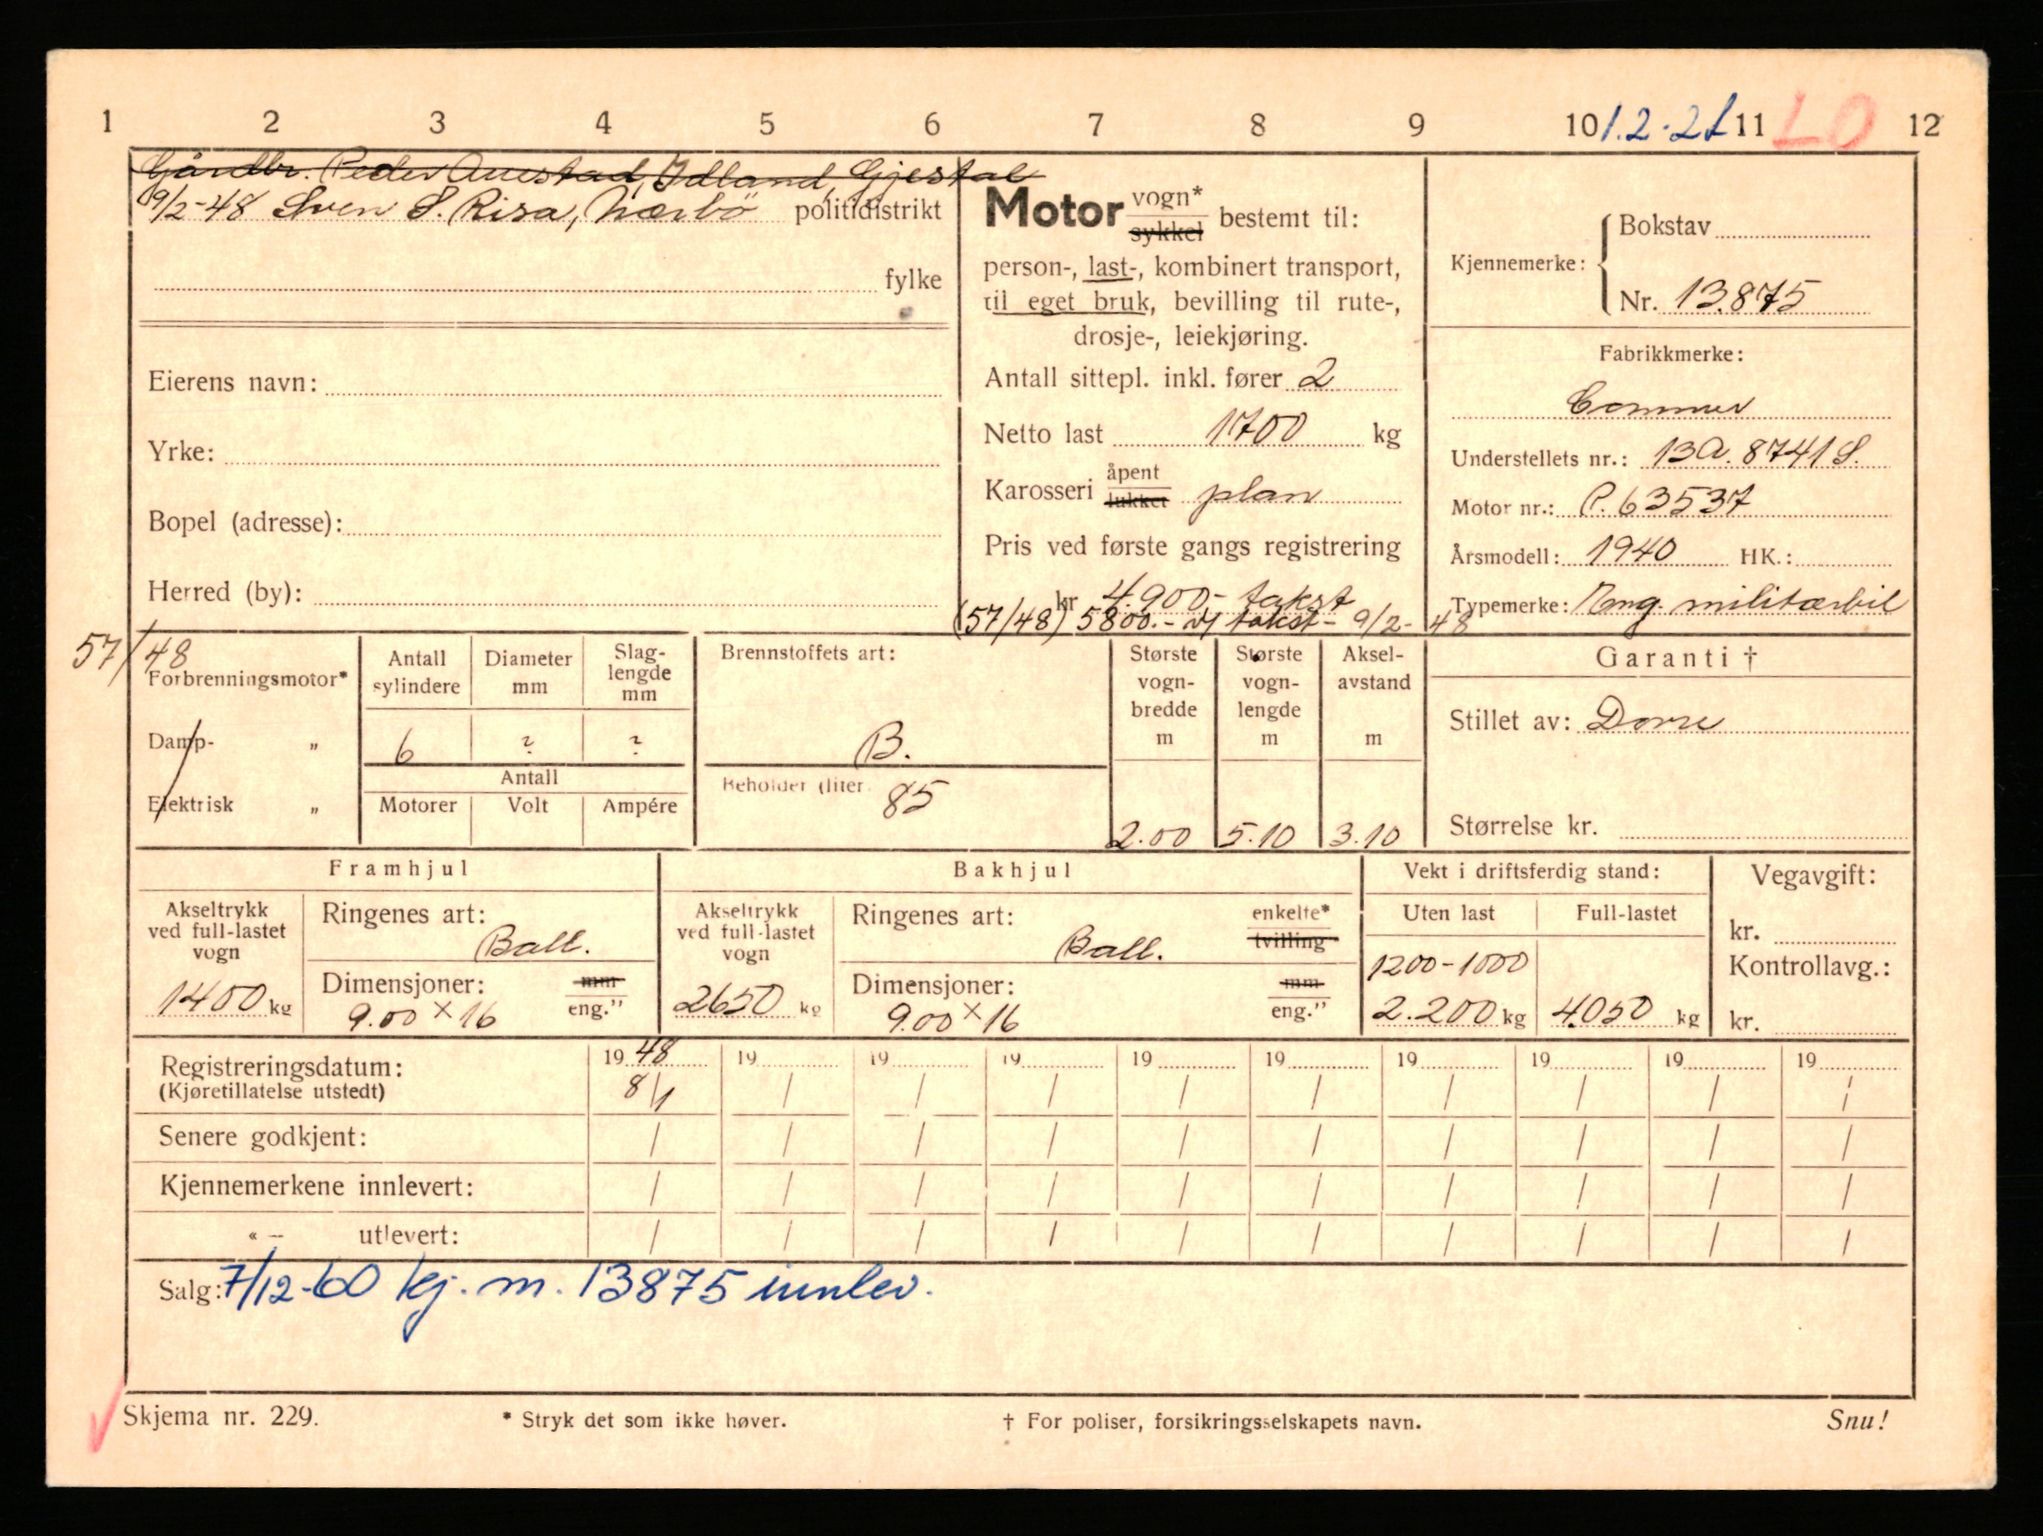 1 2 3 4 5 6 7 8 9 10 1.2-21 11 LO 12
Gårdbr. Peder Auestad, Idland, Gjestal
9/2-48 Sven S. Risa, Nærbö politidistrikt
fylke
Eierens navn:
Yrke:
Bopel (adresse):
Herred (by):
Motor vogn* sykkel bestemt til:
person-, last-, kombinert transport,
til eget bruk, bevilling til rute-,
drosje-, leiekjøring.
Antall sittepl. inkl. fører 2
Netto last 1700 kg
Karosseri åpent lukket plan
Pris ved første gangs registrering
kr 4.900,- takst
(57/48) 5800.- takst - 9/2-48
Kjennemerke: Bokstav
Nr. 13.875
Fabrikkmerke:
Commer
Understellets nr.: 13A. 8741 S.
Motor nr.: P. 63537
Årsmodell: 1940 HK.:
Typemerke: Eng. militærbil
57/48
Forbrenningsmotor*
Damp- „
Elektrisk „
Antall sylindere
Diameter mm
Slag-lengde mm
6 ? ?
Antall
Motorer Volt Ampére
Brennstoffets art:
B.
Beholder (liter 85
Største vogn-bredde m
2.00
Største vogn-lengde m
5.10
Aksel-avstand m
3.10
Garanti †
Stillet av: Dovre
Størrelse kr.
Framhjul
Akseltrykk ved full-lastet vogn
1400 kg
Ringenes art:
Ball.
Dimensjoner: mm
9.00 x 16 eng."
Bakhjul
Akseltrykk ved full-lastet vogn
2650 kg
Ringenes art: enkelte*
Ball. tvilling
Dimensjoner: mm
9.00 x 16 eng."
Vekt i driftsferdig stand:
Uten last Full-lastet
1200-1000
2.200 kg 4.050 kg
Vegavgift:
kr.
Kontrollavg.:
kr.
Registreringsdatum: 19 48 19 19 19 19 19 19 19 19 19
(Kjøretillatelse utstedt) 8/1 / / / / / / / / /
Senere godkjent: / / / / / / / / / /
Kjennemerkene innlevert: / / / / / / / / / /
« – utlevert: / / / / / / / / / /
Salg: 7/12-60 kj. m. 13875 innlev.
Skjema nr. 229. * Stryk det som ikke høver. † For poliser, forsikringsselskapets navn. Snu!